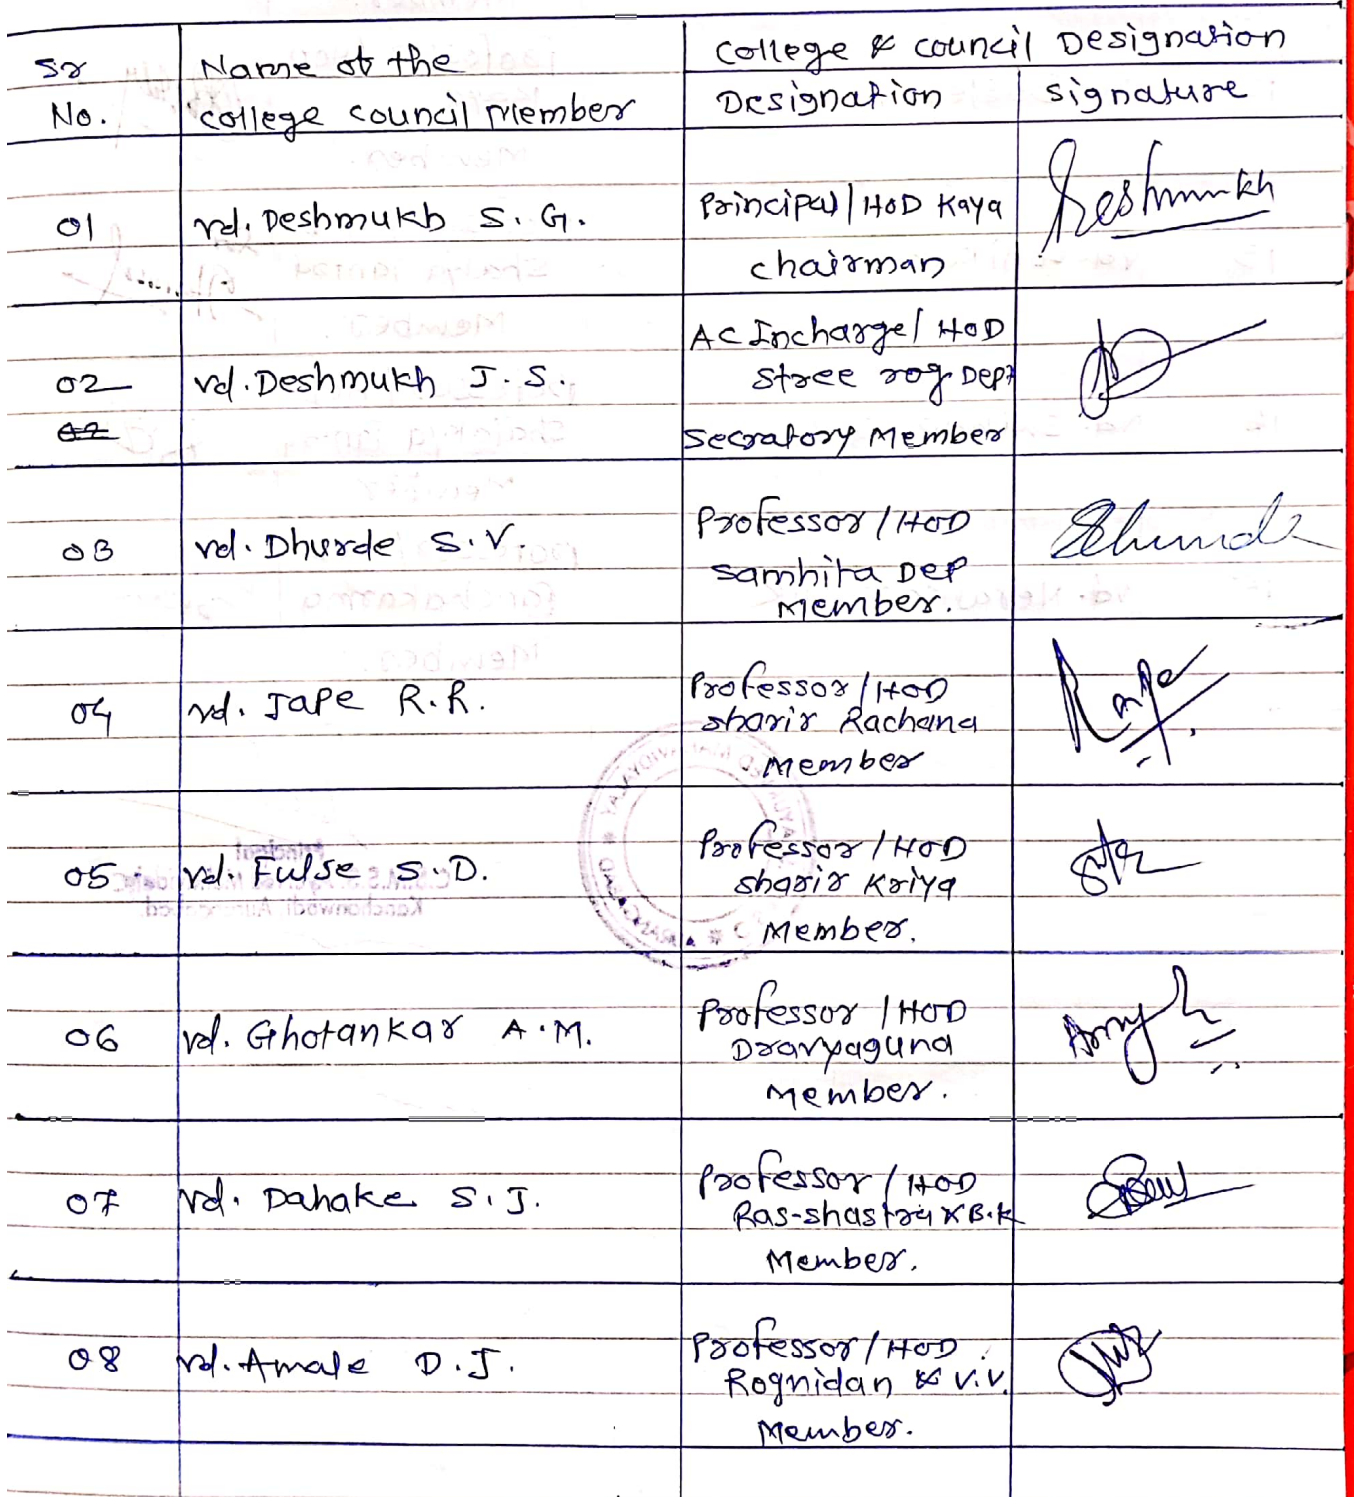 Sr Name of the College & council Designation
No. college council Member Designation signature
01 vd. Deshmukh S. G. Principal / HOD Kaya Deshmukh
chairman
02 vd. Deshmukh J. S. AC Incharge / HOD
stree rog Dept
02 Secratory Member
03 vd. Dhurde S. V. Professor / HOD
samhita Dep
Member.
04 vd. Jape R. R. Professor / HOD
sharir Rachana
Member
05 vd. Fulse S. D. Professor / HOD
sharir Kriya
Member.
06 vd. Ghotankar A. M. Professor / HOD
Dravyaguna
Member.
07 vd. Dahake S. J. Professor / HOD
Ras-shastra & B.K
Member.
08 vd. Amale D. J. Professor / HOD
Rognidan & V.V.
Member.